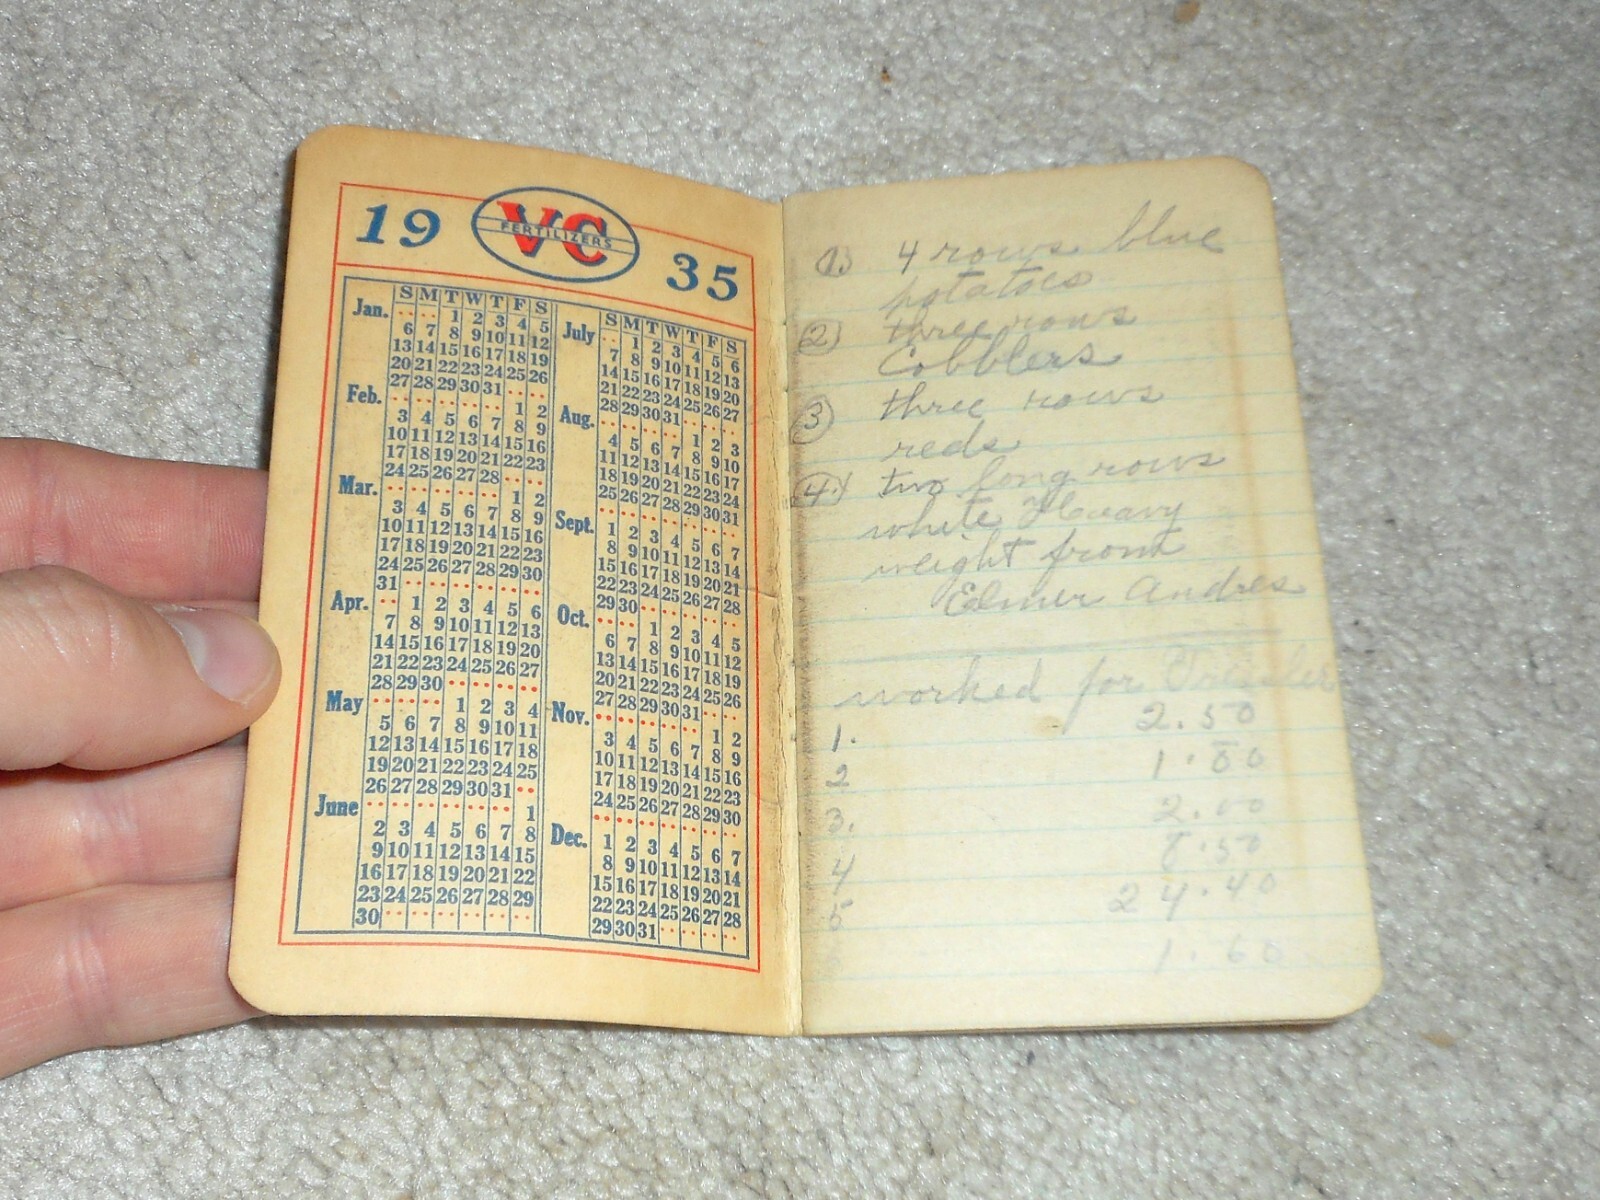 19 VC 35
FERTILIZERS
S M T W T F S
Jan. 1 2 3 4 5
6 7 8 9 10 11 12
13 14 15 16 17 18 19
20 21 22 23 24 25 26
27 28 29 30 31
Feb. 1 2
3 4 5 6 7 8 9
10 11 12 13 14 15 16
17 18 19 20 21 22 23
24 25 26 27 28
Mar. 1 2
3 4 5 6 7 8 9
10 11 12 13 14 15 16
17 18 19 20 21 22 23
24 25 26 27 28 29 30
31
Apr. 1 2 3 4 5 6
7 8 9 10 11 12 13
14 15 16 17 18 19 20
21 22 23 24 25 26 27
28 29 30
May 1 2 3 4
5 6 7 8 9 10 11
12 13 14 15 16 17 18
19 20 21 22 23 24 25
26 27 28 29 30 31
June 1
2 3 4 5 6 7 8
9 10 11 12 13 14 15
16 17 18 19 20 21 22
23 24 25 26 27 28 29
30
S M T W T F S
July 1 2 3 4 5 6
7 8 9 10 11 12 13
14 15 16 17 18 19 20
21 22 23 24 25 26 27
28 29 30 31
Aug. 1 2 3
4 5 6 7 8 9 10
11 12 13 14 15 16 17
18 19 20 21 22 23 24
25 26 27 28 29 30 31
Sept. 1 2 3 4 5 6 7
8 9 10 11 12 13 14
15 16 17 18 19 20 21
22 23 24 25 26 27 28
29 30
Oct. 1 2 3 4 5
6 7 8 9 10 11 12
13 14 15 16 17 18 19
20 21 22 23 24 25 26
27 28 29 30 31
Nov. 1 2
3 4 5 6 7 8 9
10 11 12 13 14 15 16
17 18 19 20 21 22 23
24 25 26 27 28 29 30
Dec. 1 2 3 4 5 6 7
8 9 10 11 12 13 14
15 16 17 18 19 20 21
22 23 24 25 26 27 28
29 30 31
1) 4 rows blue
potatoes
2) three rows
Cobblers
3) three rows
reds
4) two long rows
white Heavy
weight from
Elmer Andres
worked for
1. 2.50
2
3. 2.00
4 8.50
5 24.40
1.60